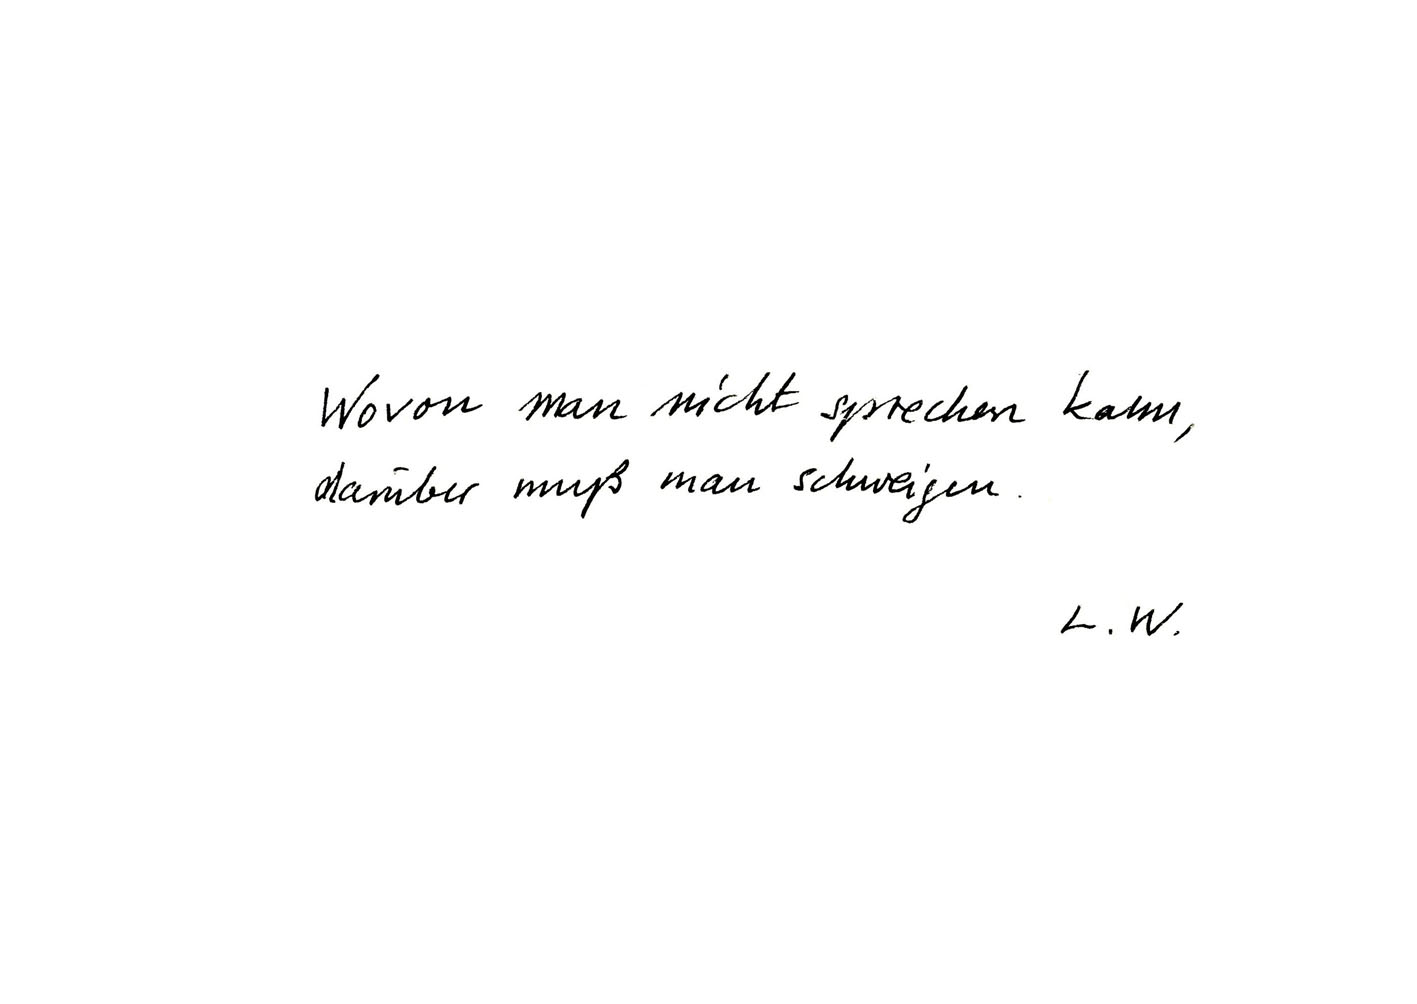 Wovon man nicht sprechen kann,
darüber muß man schweigen.
L. W.